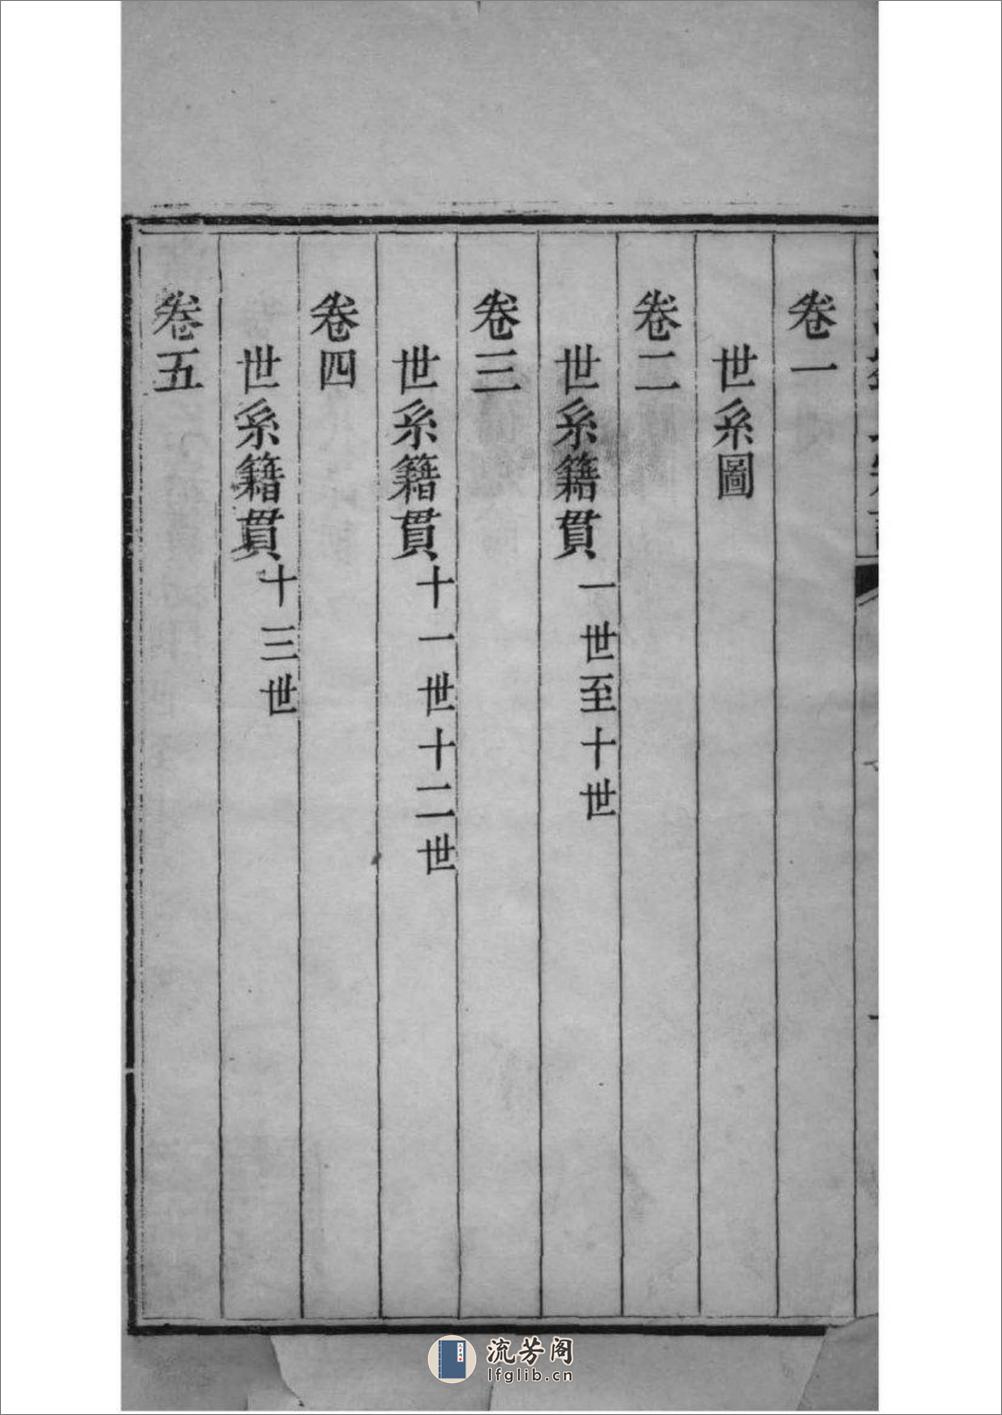 卷一
世系圖
卷二
世系籍貫 一世至十世
卷三
世系籍貫 十一世十二世
卷四
世系籍貫 十三世
卷五
流芳阁
lfglib.cn